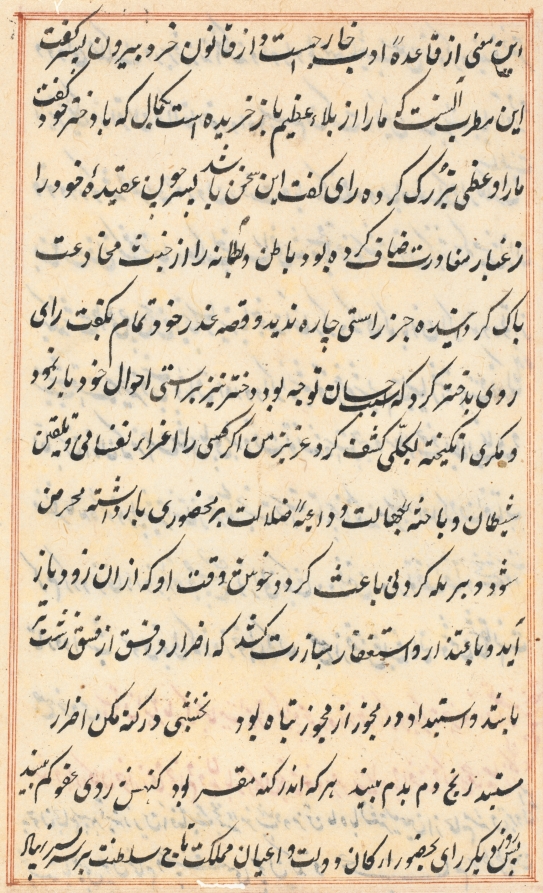 این معنی از قاعدهٔ ادب خارجست و از قانون خرد بیرون پسر گفت
این مطرب آنست که ما را از بلاء عظیم باز خریده است بکابل که با دختر خود گفت
ما را وعظی بزرگ کرده رای گفت این سخن باشد پسر چون عقیدهٔ خود را
ز غبار مغاورت صاف کرده بود و باطن و بطانه را از خبث مخادعت
پاک گردانیده جز راستی چاره ندید و قصه غدر خود تمام بگفت رای
روی بدختر کرد که سبب چسان توجه بود دختر نیز براستی احوال خود باز نمود
و مکری انگیخته بکلی کشف کرد عزیز من اگر کسی را اغراء نفسانی و تلقین
شیطان و باعثه جهالت و داعیهٔ ضلالت بر محضوری باز داشته محرمن
شود و بر بله کردنی باعث گردد خوش وقت او که ازان زود باز
آید و باعتذار و استغفار مبادرت کند که اصرار و فسق از فسق زشت تر
باشد و استبداد در فجور از فجور تباه بود نخشبی در گنه مکن اصرار
مستبد رنج دم بدم بیند هر که اندر گنه مصر بود گنهش روی عفو کم بیند
پس روز دیگر رای بحضور ارکان دولت و اعیان مملکت تاج سلطنت بر سر پسر نهاد